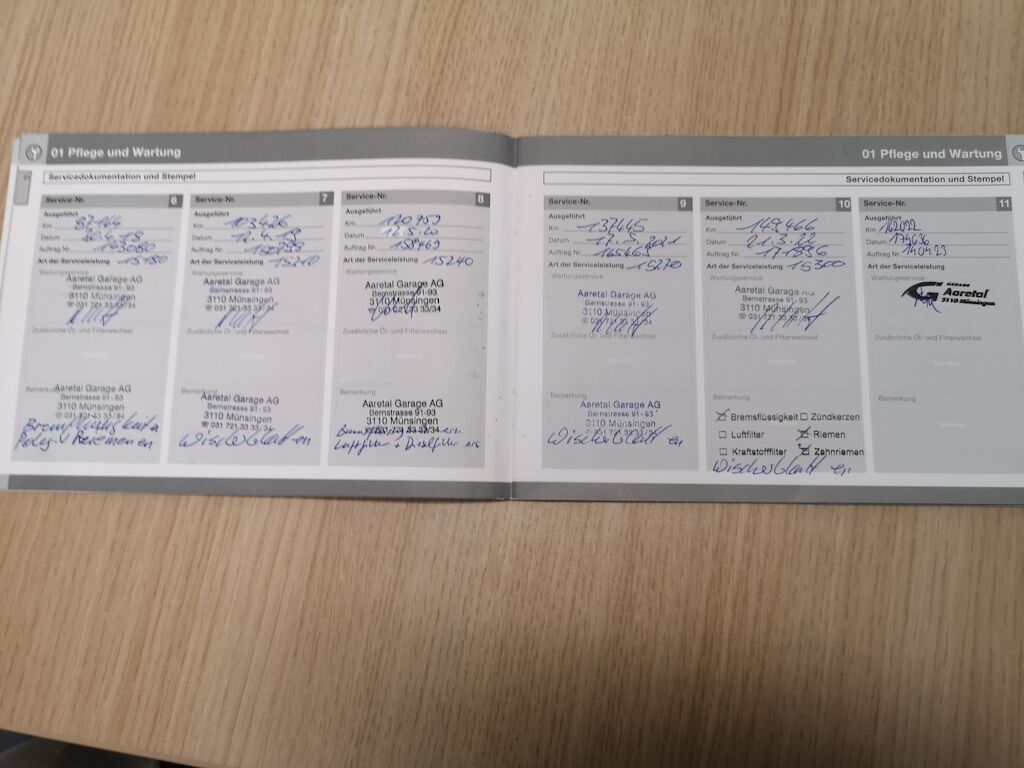 01 Pflege und Wartung
Servicedokumentation und Stempel
Service-Nr. 6
Ausgeführt
Km
Datum
Auftrag Nr. 143080
Art der Serviceleistung 15180
Wartungsservice
Aaretal Garage AG
Bernstrasse 91-93
3110 Münsingen
☎ 031 721 33 33/34
Zusätzliche Öl- und Filterwechsel
Stempel
Bemerkung
Aaretal Garage AG
Bernstrasse 91-93
3110 Münsingen
☎ 031 721 33 33/34
Bremsflüssigkeit
Service-Nr. 7
Ausgeführt
Km 103426
Datum
Auftrag Nr.
Art der Serviceleistung 15210
Wartungsservice
Aaretal Garage AG
Bernstrasse 91-93
3110 Münsingen
☎ 031 721 33 33/34
Zusätzliche Öl- und Filterwechsel
Stempel
Bemerkung
Aaretal Garage AG
Bernstrasse 91-93
3110 Münsingen
☎ 031 721 33 33/34
Wischerblatt en
Service-Nr. 8
Ausgeführt
Km 120752
Datum 12.5.20
Auftrag Nr. 158469
Art der Serviceleistung 15240
Wartungsservice
Aaretal Garage AG
Bernstrasse 91-93
3110 Münsingen
☎ 031 721 33 33/34
Zusätzliche Öl- und Filterwechsel
Stempel
Bemerkung
Aaretal Garage AG
Bernstrasse 91-93
3110 Münsingen
☎ 031 721 33 33/34
Luftfilter +
01 Pflege und Wartung
Servicedokumentation und Stempel
Service-Nr. 9
Ausgeführt
Km 137445
Datum
Auftrag Nr. 165463
Art der Serviceleistung 15270
Wartungsservice
Aaretal Garage AG
Bernstrasse 91-93
3110 Münsingen
☎ 031 721 33 33/34
Zusätzliche Öl- und Filterwechsel
Stempel
Bemerkung
Aaretal Garage AG
Bernstrasse 91-93
3110 Münsingen
☎ 031 721 33 33/34
Wischerblatt en
Service-Nr. 10
Ausgeführt
Km 149466
Datum 21.3.22
Auftrag Nr. 171896
Art der Serviceleistung 15300
Wartungsservice
Aaretal Garage AG
Bernstrasse 91-93
3110 Münsingen
☎ 031 721 33 33/34
Zusätzliche Öl- und Filterwechsel
Stempel
Bemerkung
☒ Bremsflüssigkeit ☐ Zündkerzen
☐ Luftfilter ☒ Riemen
☐ Kraftstofffilter ☒ Zahnriemen
Wischerblatt er
Service-Nr. 11
Ausgeführt
Km 162022
Datum 175636
Auftrag Nr. 14.04.23
Art der Serviceleistung
Wartungsservice
GARAGE
Aaretal
3110 Münsingen
Zusätzliche Öl- und Filterwechsel
Stempel
Bemerkung
Stempel